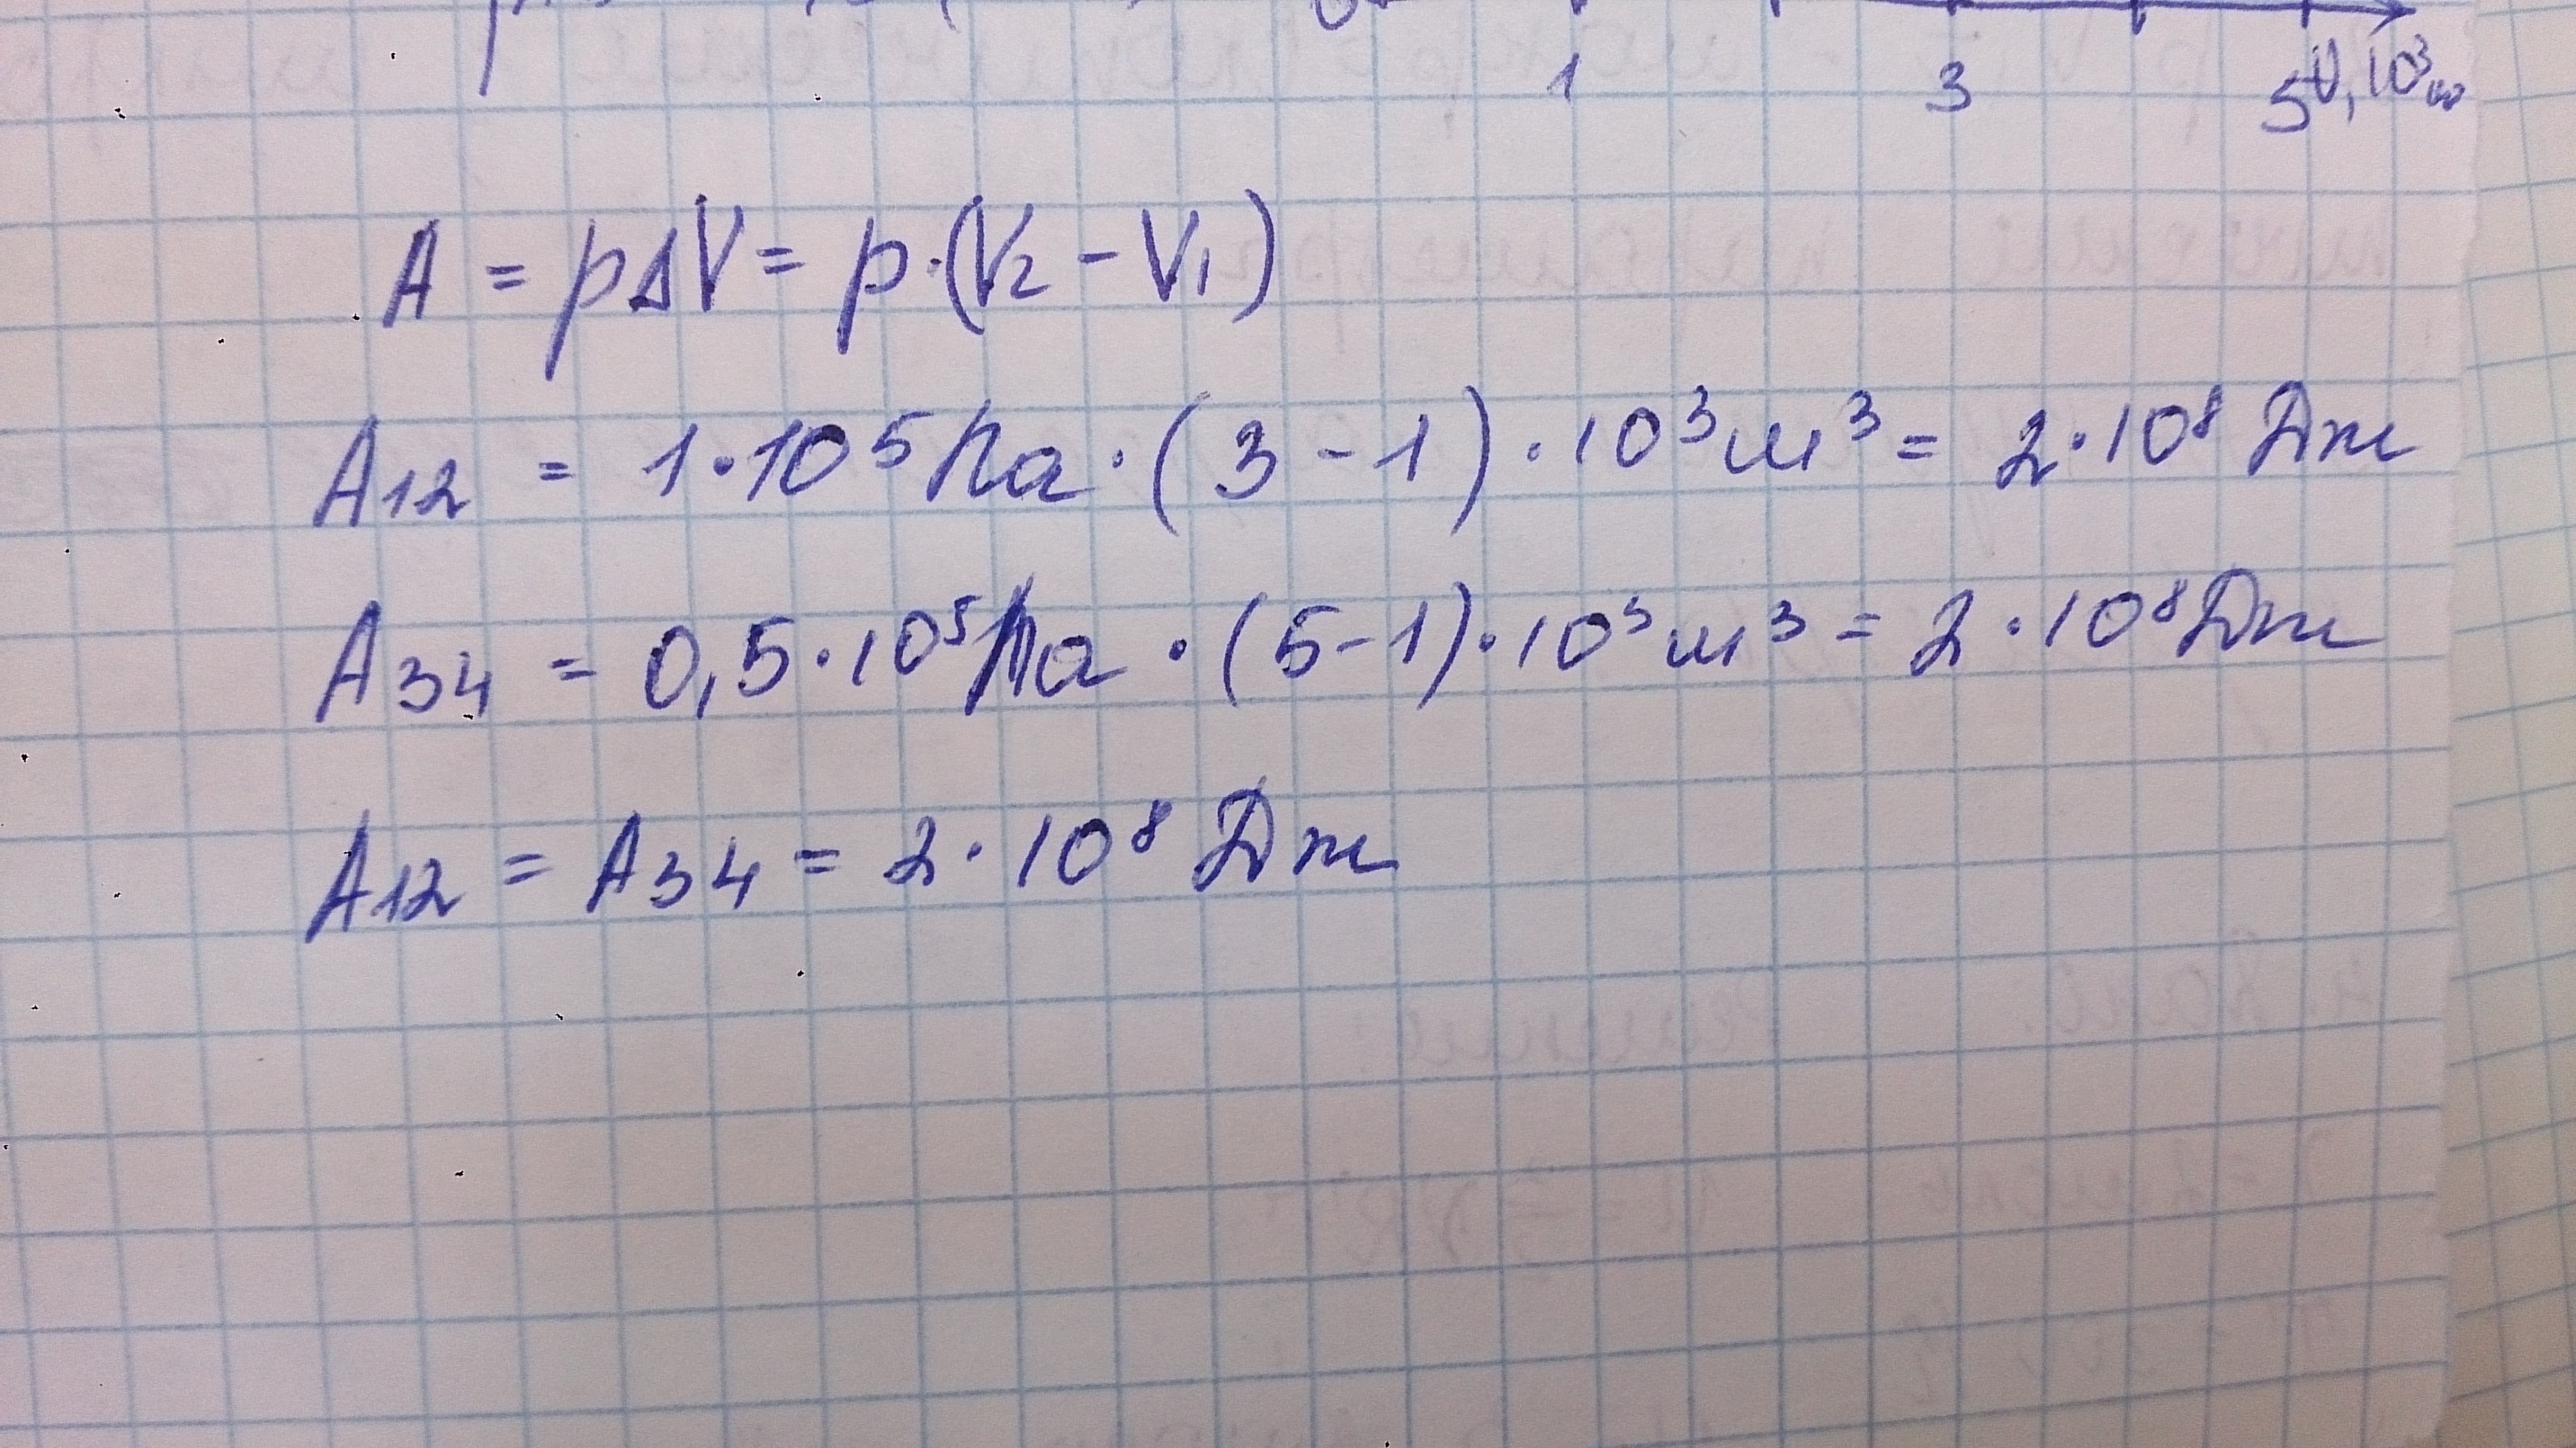 1 3 5 V, 10³ м
A = pΔV = p·(V₂ - V₁)
A₁₂ = 1·10⁵ Па·(3-1)·10³ м³ = 2·10⁸ Дж
A₃₄ = 0,5·10⁵ Па·(5-1)·10³ м³ = 2·10⁸ Дж
A₁₂ = A₃₄ = 2·10⁸ Дж